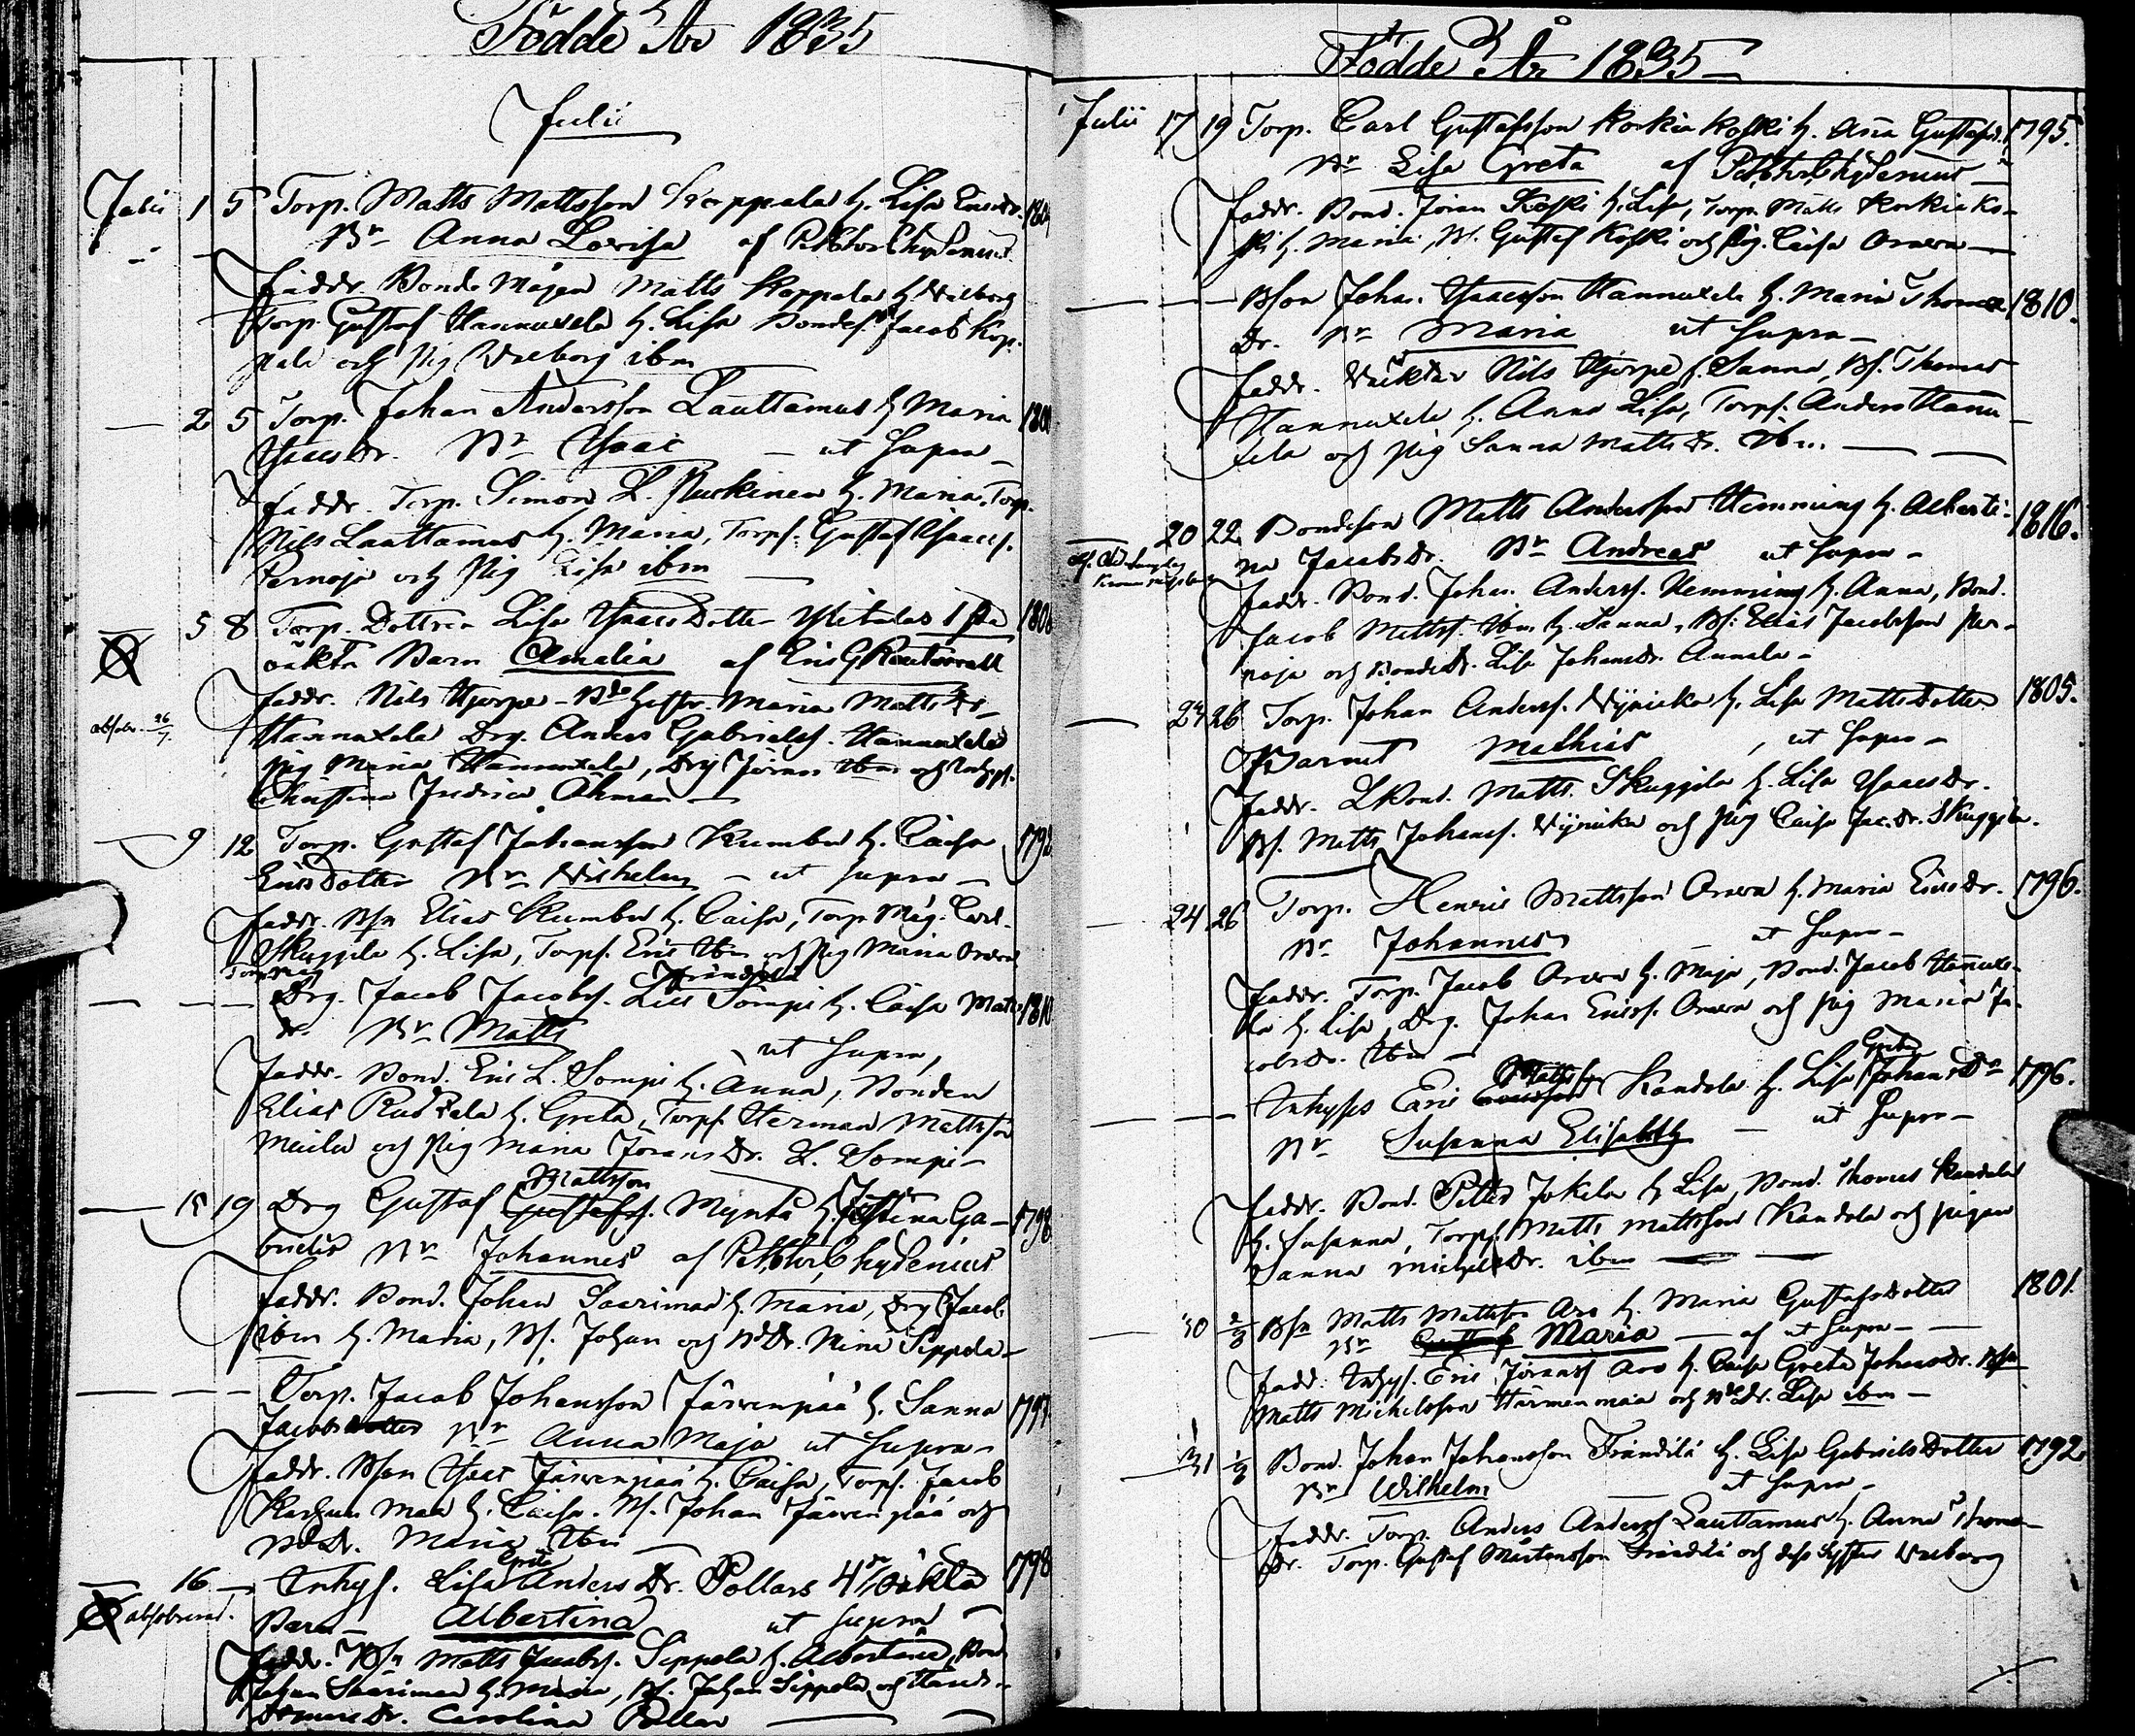 Födde År 1835
Julii
Julii 1 5 Torp. Matts Mattsson Koppala h. Lisa Ericsdr.
Bn Anna Lovisa af PKtor Chydenius
Faddr. Bonde Mågen Matts Koppala h. Walborg
Torp. Gustaf Hannuxela h. Lisa Bondes. Jacob Kop-
pala och Pig Walborg ibm
2 5 Torp. Johan Andersson Lauttamus h. Maria
Isacsdr. Bn Isaac ut supra
Faddr. Torp. Simon L. h. Maria, Torp.
Nils Lauttamus h. Maria, Torps. Gustaf Isaacs.
Pernoja och Pig Lisa ibm
5 8 Torp. Dottren Lisa Isaacs Dotter 1sta 1808
oäkta Barn Amalia af Eric G
Faddr. Nils Hjerpe Maria Matts Dr
Hannuxela Drg. Anders Gabrielss. Hannuxela
Pig Maria Hannuxela, Drg Jöran ibm och
Christina Fredrica Öhman
absolv. 26/7
9 12 Torp. Gustaf Johansson Krumbu h. Caisa
Ericsdotter Bn Wilhelm ut supra
Faddr. Bsn Elias Krumbu h. Caisa, Torp. Måg. Carl
Skuggila h. Lisa, Torps. Eric ibm och Pig Maria Orava
Torp. Måg Frändilä
Drg. Jacob Jacobss. Sompi h. Caisa Matts 1810
dr. Bn Matts ut supra,
Faddr. Bond. Eric L. Sompi h. Anna, Bonden
Elias h. Greta, Torps. Herman Mattsson
och Pig Maria Jörans Dr. L. Sompi
Mattsson
15 19 Drg Gustaf Gustafss. Myntä h. Justina Ga- 1798
briels Bn Johannes af PKtor Chydenius
Faddr. Bond. Johan Saarimaa h. Maria, Drg Jacob
ibm h. Maria, Bs. Johan och BdDr. Sippola
Torp. Jacob Johansson Järvenpää h. Sanna
Jacobsdotter Bn Anna Maja ut supra
Faddr. Bson Isaac Järvenpää h. Caisa, Torps. Jacob
h. Caisa, Bs. Johan Järvenpää och
BdDr. Maria ibm
Greta
16 Inhys. Lisa Anders Dr. Pollars 4de oäkta 1798
Barn Albertina ut supra
absolverad.
Faddr. Bsn Matts Jacobs. Sippola h. Albertina, Bond
Johan Saarimaa h. Maria, Bs. Johan Sippola och
Dr. Carolina Pollar
Födde År 1835
Julii 17 19 Torp. Carl Gustafsson Korkiakoski h. Anna Gustafsd. 1795.
Bn Lisa Greta af PKtor Chydenius
Faddr. Bond. Jöran Koski h. Lisa, Torp. Matts Korkiako-
ski h. Maria, Bs. Gustaf Koski och Pig. Caisa Orava
Bson Johan Isaacsson Hannuxela h. Maria Thomae 1810.
Dr. Bn Maria ut supra
Faddr. Nils Hjerpe h. Sanna, Bs. Thomas
Hannuxela h. Anna Lisa, Torps. Anders Hannu
xela och Pig Sanna Matts Dr. ibm
20 22 Bondeson Matts Andersson Hemming h. Alberti- 1816.
na Jacobs Dr. Bn Andreas ut supra
Faddr. Bond. Johan Anderss. Hemming h. Anna, Bond.
Jacob Mattss. ibm h. Sanna, Bs. Elias Jacobsson Per-
noja och BondeDr. Lisa Johansdr. Annala
24 26 Torp. Johan Anderss. Wijnicka h. Lisa Matts Dotter 1805.
Barnet Mathias, ut supra
Faddr. LBond. Matts Skuggila h. Lisa Isaacs Dr.
Bs. Matts Johanss. Wijnicka och Pig Caisa Jac. Dr. Skuggila.
24 26 Torp. Henric Mattsson Orava h. Maria Erics Dr. 1796.
Bn Johannes ut supra
Faddr. Torp. Jacob Orava h. Maja, Bond. Jacob Hannuxe-
la h. Lisa, Drg. Johan Ericss. Orava och Pig Maria Ja-
cobs Dr. ibm
Mattsson Greta
Inhyses Eric Kandola h. Lisa Johans Dr 1796.
Bn Susanna Elisabeth ut supra
Faddr. Bond. Petter Jokela h. Lisa, Bond. Thomas Kandola
h. Susanna, Torps. Matts Mattsson Kandola och Pigan
Sanna Michels Dr. ibm
30 2/8 Bsn Matts Mattsson Aro h. Maria Gustafsdotter 1801.
Bn Gustaf Maria af ut supra
Fadd. Inhys. Eric Jöranss Aro h. Caisa Greta Johansdr. Bsn
Matts Michelsson Härmenmaa och BdDr. Lisa ibm
31 2/8 Bond. Johan Johansson Frändilä h. Lisa Gabriels Dotter 1792
Bn Wilhelm ut supra
Faddr. Torp. Anders Anderss Lauttamus h. Anna Thomae
Dr. Torp. Gustaf Mårtensson Frändilä och dess Syster Walborg